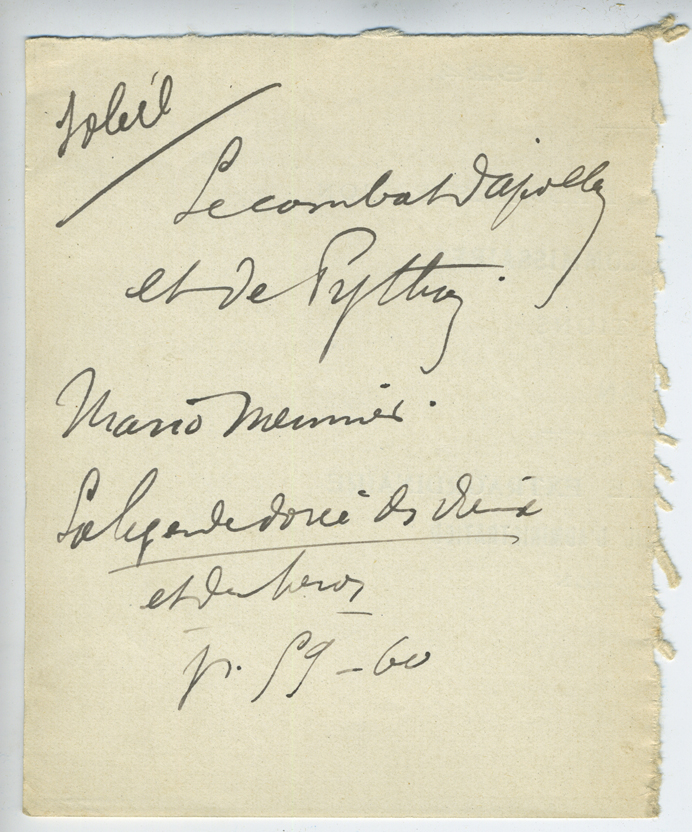 Soleil
Le combat d'Apollon
et de Python.
Mario Meunier.
La légende dorée des dieux
et des héros
p. 59-60